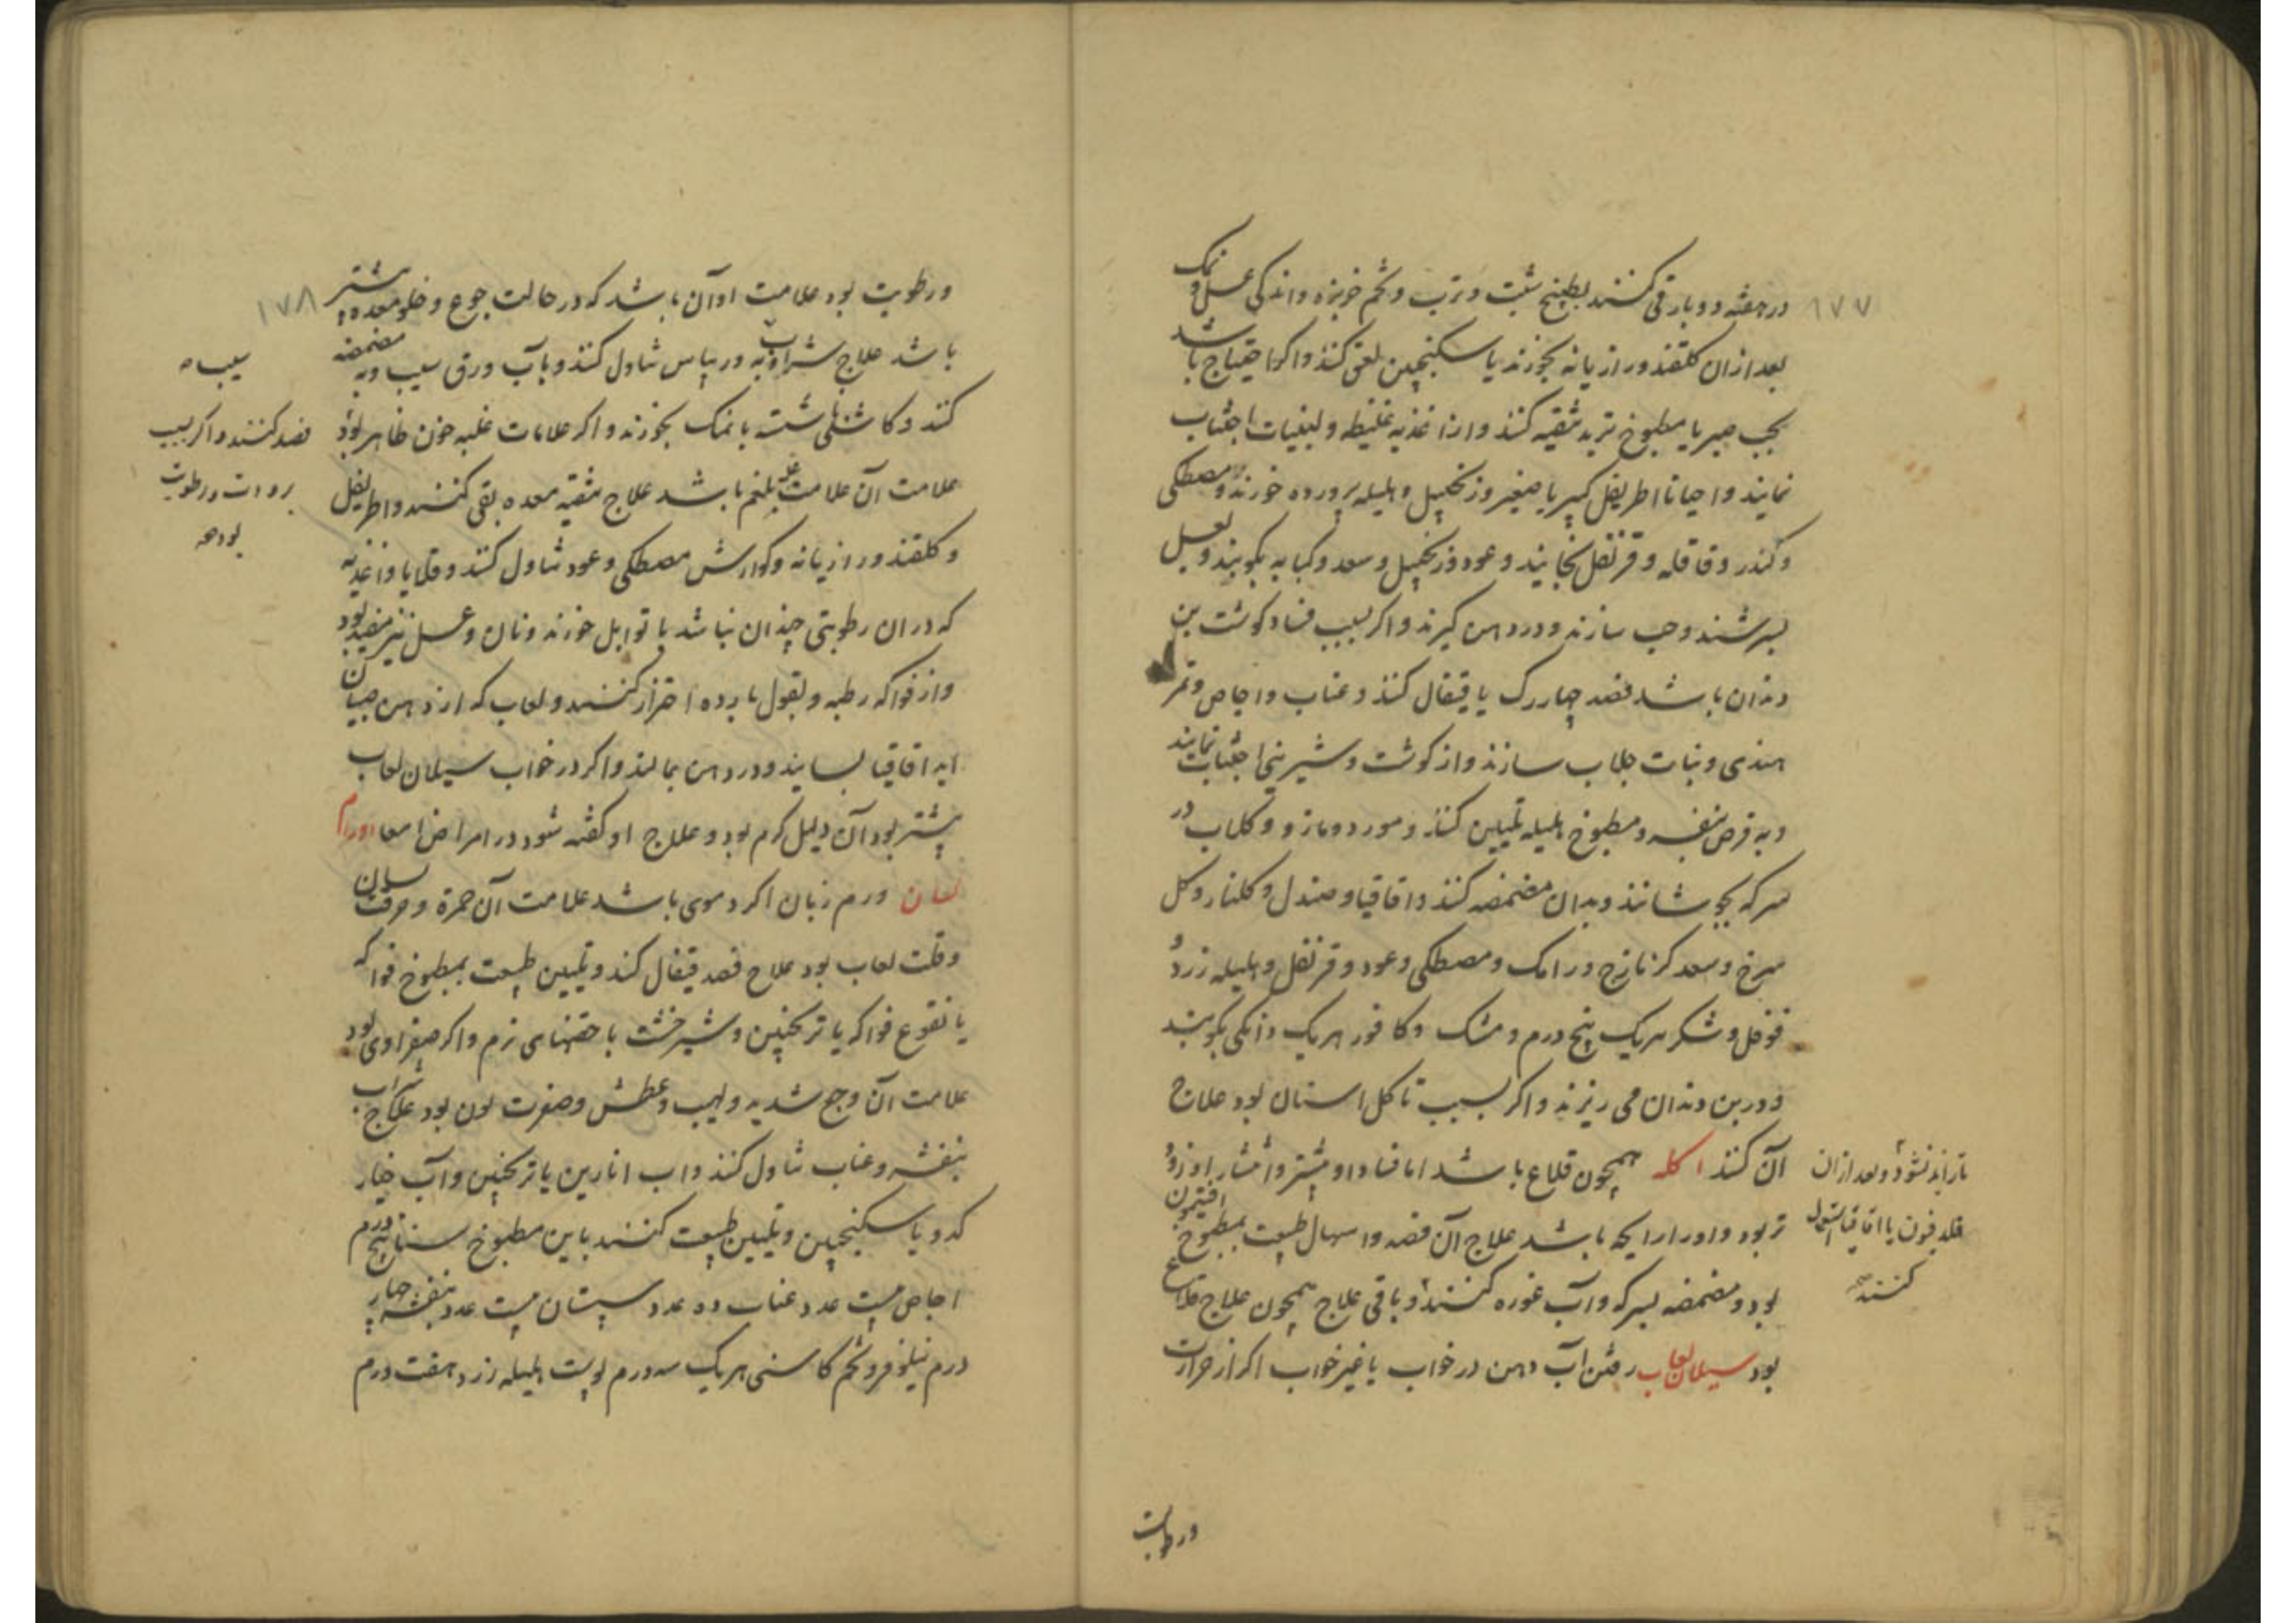 ۱۷۷
در هفته دو بار قی کنند بطبیخ شبت و ترب و تخم خربزه و اندکی عسل و نمک
بعد از ان کلقند و رازیانه بخورند یا سکنجبین لعق کنند و اکر احتیاج باشد
بحب صبر یا مطبوخ تربد تنقیه کنند و از اغذیه غلیظه و لبنیات اجتناب
نمایند و احیانا اطریفل کبیر یا صغیر و زنجبیل و هلیله پرورده خورند و مصطکی
و کندر و قاقله و قرنفل بخایند و عود و زنجبیل و سعد و کبابه بکوبند و بعسل
بسرشند و حب سازند و در دهن کیرند و اکر بسبب فساد کوشت بن
دندان باشد فصد چهار رک یا قیفال کنند و عناب و اجاص و تمر
هندی و نبات جلاب سازند و از کوشت و شیرینی اجتناب نمایند
و به قرص بنفسه و مطبوخ هلیله تلیین کنند و مورد و مازو و کلاب در
سرکه بجوشانند و بدان مضمضه کنند و اقاقیا و صندل و کلنار و کل
سرخ و سعد کزنازج و رامک و مصطکی و عود و قرنفل و هلیله زرد و
فوفل و شکر هریک پنج درم و مشک و کافور هریک دانکی بکوبند
و در بن دندان می ریزند و اکر بسبب تاکل اسنان بود علاج
آن کنند اکله همچون قلاع باشد اما فساد او بیشتر و انتشار او زود
تر بود و او را رایحه باشد علاج آن فصد و اسهال طبیعت بمطبوخ افتیمون
بود و مضمضه بسرکه و آب غوره کنند و باقی علاج همچون علاج قلاع
بود سیلان لعاب رفتن آب دهن در خواب یا غیر خواب اکر از حرارت
تا زایل نشود و بعد از ان
قلدفون یا اقاقیا استعمال
کنند
ورطوبت
۱۷۸
ورطوبت بود علامت او آن باشد که در حالت جوع و خلو معده بیشتر
باشد علاج شراب به و ریباس تناول کنند و بآب ورق سیب و به مضمضه
کنند و کاشنی شسته با نمک بخورند و اکر علامات غلبه خون ظاهر بود
علامت آن علامت غلبه بلغم باشد علاج تنقیه معده بقی کنند و اطریفل
و کلقند و رازیانه و کوارش مصطکی و عود تناول کنند و قلایا و اغذیه
که در ان رطوبتی چندان نباشد با توابل خورند و نان و عسل نیز مفید بود
و از فواکه رطبه و بقول بارده احتراز کنند و لعاب که از دهن صبیان
اید اقاقیا بسایند و در دهن بمالند و اکر در خواب سیلان لعاب
بیشتر بود آن دلیل کرم بود و علاج او کفته شود در امراض امعا اورام
لسان ورم زبان اکر دموی باشد علامت آن حمرة و حرقت لسان
و قلت لعاب بود علاج فصد قیفال کنند و تلیین طبیعت بمطبوخ فواکه
یا نقوع فواکه یا ترنجبین و شیرخشت یا حقنهای نرم و اکر صفراوی بود
علامت آن وجع شدید و لهیب و عطش و صفرت لون بود علاج شراب
بنفشه و عناب تناول کنند و اب انارین یا ترنجبین و آب خیار
کدو یا سکنجبین و تلیین طبیعت کنند باین مطبوخ سنا پنج درم
اجاص بیست عدد عناب ده عدد سپستان بیست عدد بنفشه چهار
درم نیلوفر و تخم کاسنی هریک سه درم پوست هلیله زرد هفت درم
سیب
فصد کنند و اکر بسبب
برودت و رطوبت
بود